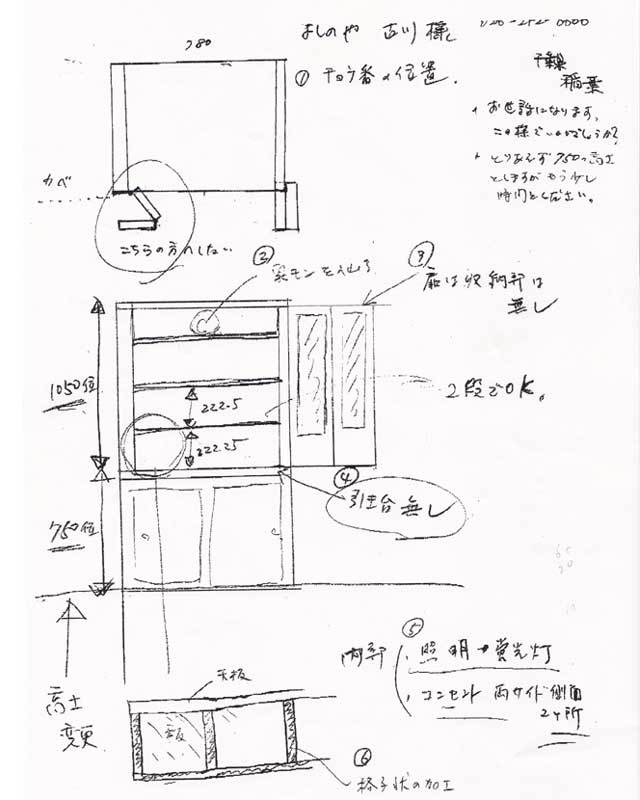 よしのや 古川 様
780
① チョウ番の位置.
千葉
稲葉
お世話になります,
この様でいいでしょうか?
とりあえず 750の高さ
としますが もう少し
時間をください。
カベ
こちらの方にしない
②
③
扉は収納部は
無し
1050位
222.5
222.25
2段でOK。
④
引出台 無し
750位
高さ
変更
⑤
内部
照明→蛍光灯
コンセント 両サイド側面
2ヶ所
天板
⑥
格子状の加工